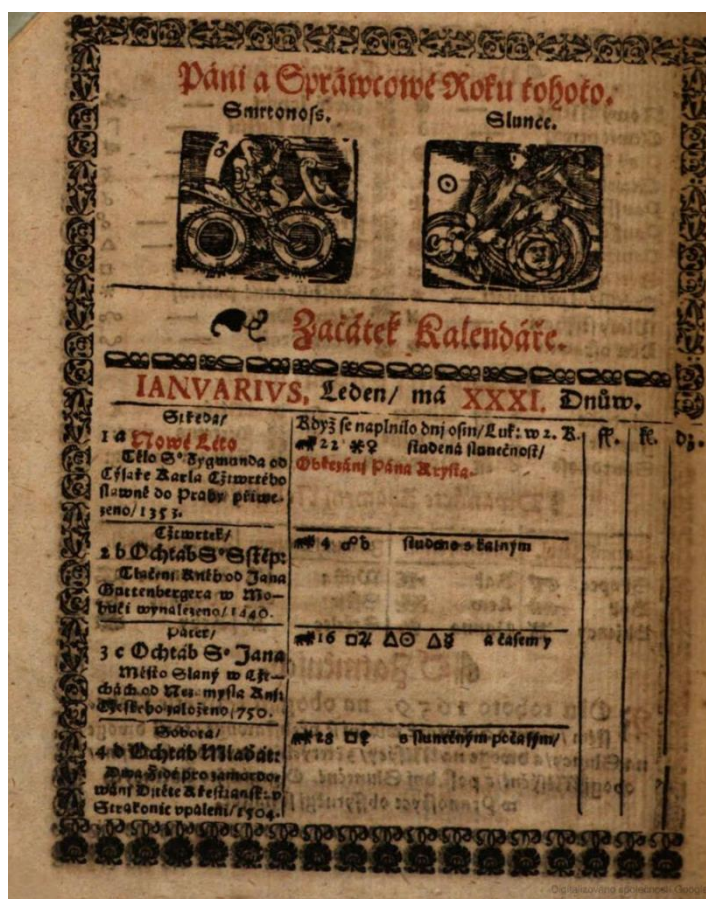 Páni a Spráwcowé Roku tohoto.
Smrtonoss. Slunce.
Začátek Kalendáře.
IANVARIVS, Leden/ má XXXI. Dnůw.
Středa/
1 a Nowé Léto
Tělo Sᵒ Zygmunda od
Cýsaře Karla Cžtwrtého
slawně do Prahy přiwe-
zeno/1353.
Když se naplnilo dnj osm/Luk: w 2. K.
22 ⚹♀ studená slunečnost/
Obřezání Pána Krysta.
Cžtwrtek/
2 b Ochtáb Sᵒ Sstěp:
Tlačení Kněh od Jana
Guttenbergera w Mo-
huči wynalezeno/1440.
4 ☌♄ studeno s kalným
Pátek/
3 c Ochtáb Sᵒ Jana
Město Slaný w Cže-
chách od Nezamysla Kniž:
Cžeského založeno/750.
16 □♃ △☉ △☿ a časem y
Sobota/
4 d Ochtáb Mláďát:
Dwa Židé pro zamordo-
wání Djtěte Křestiansk: v
Strakonic vpáleni/1504.
28 □♀ s slunečným počasým/
Digitalizováno společností Google